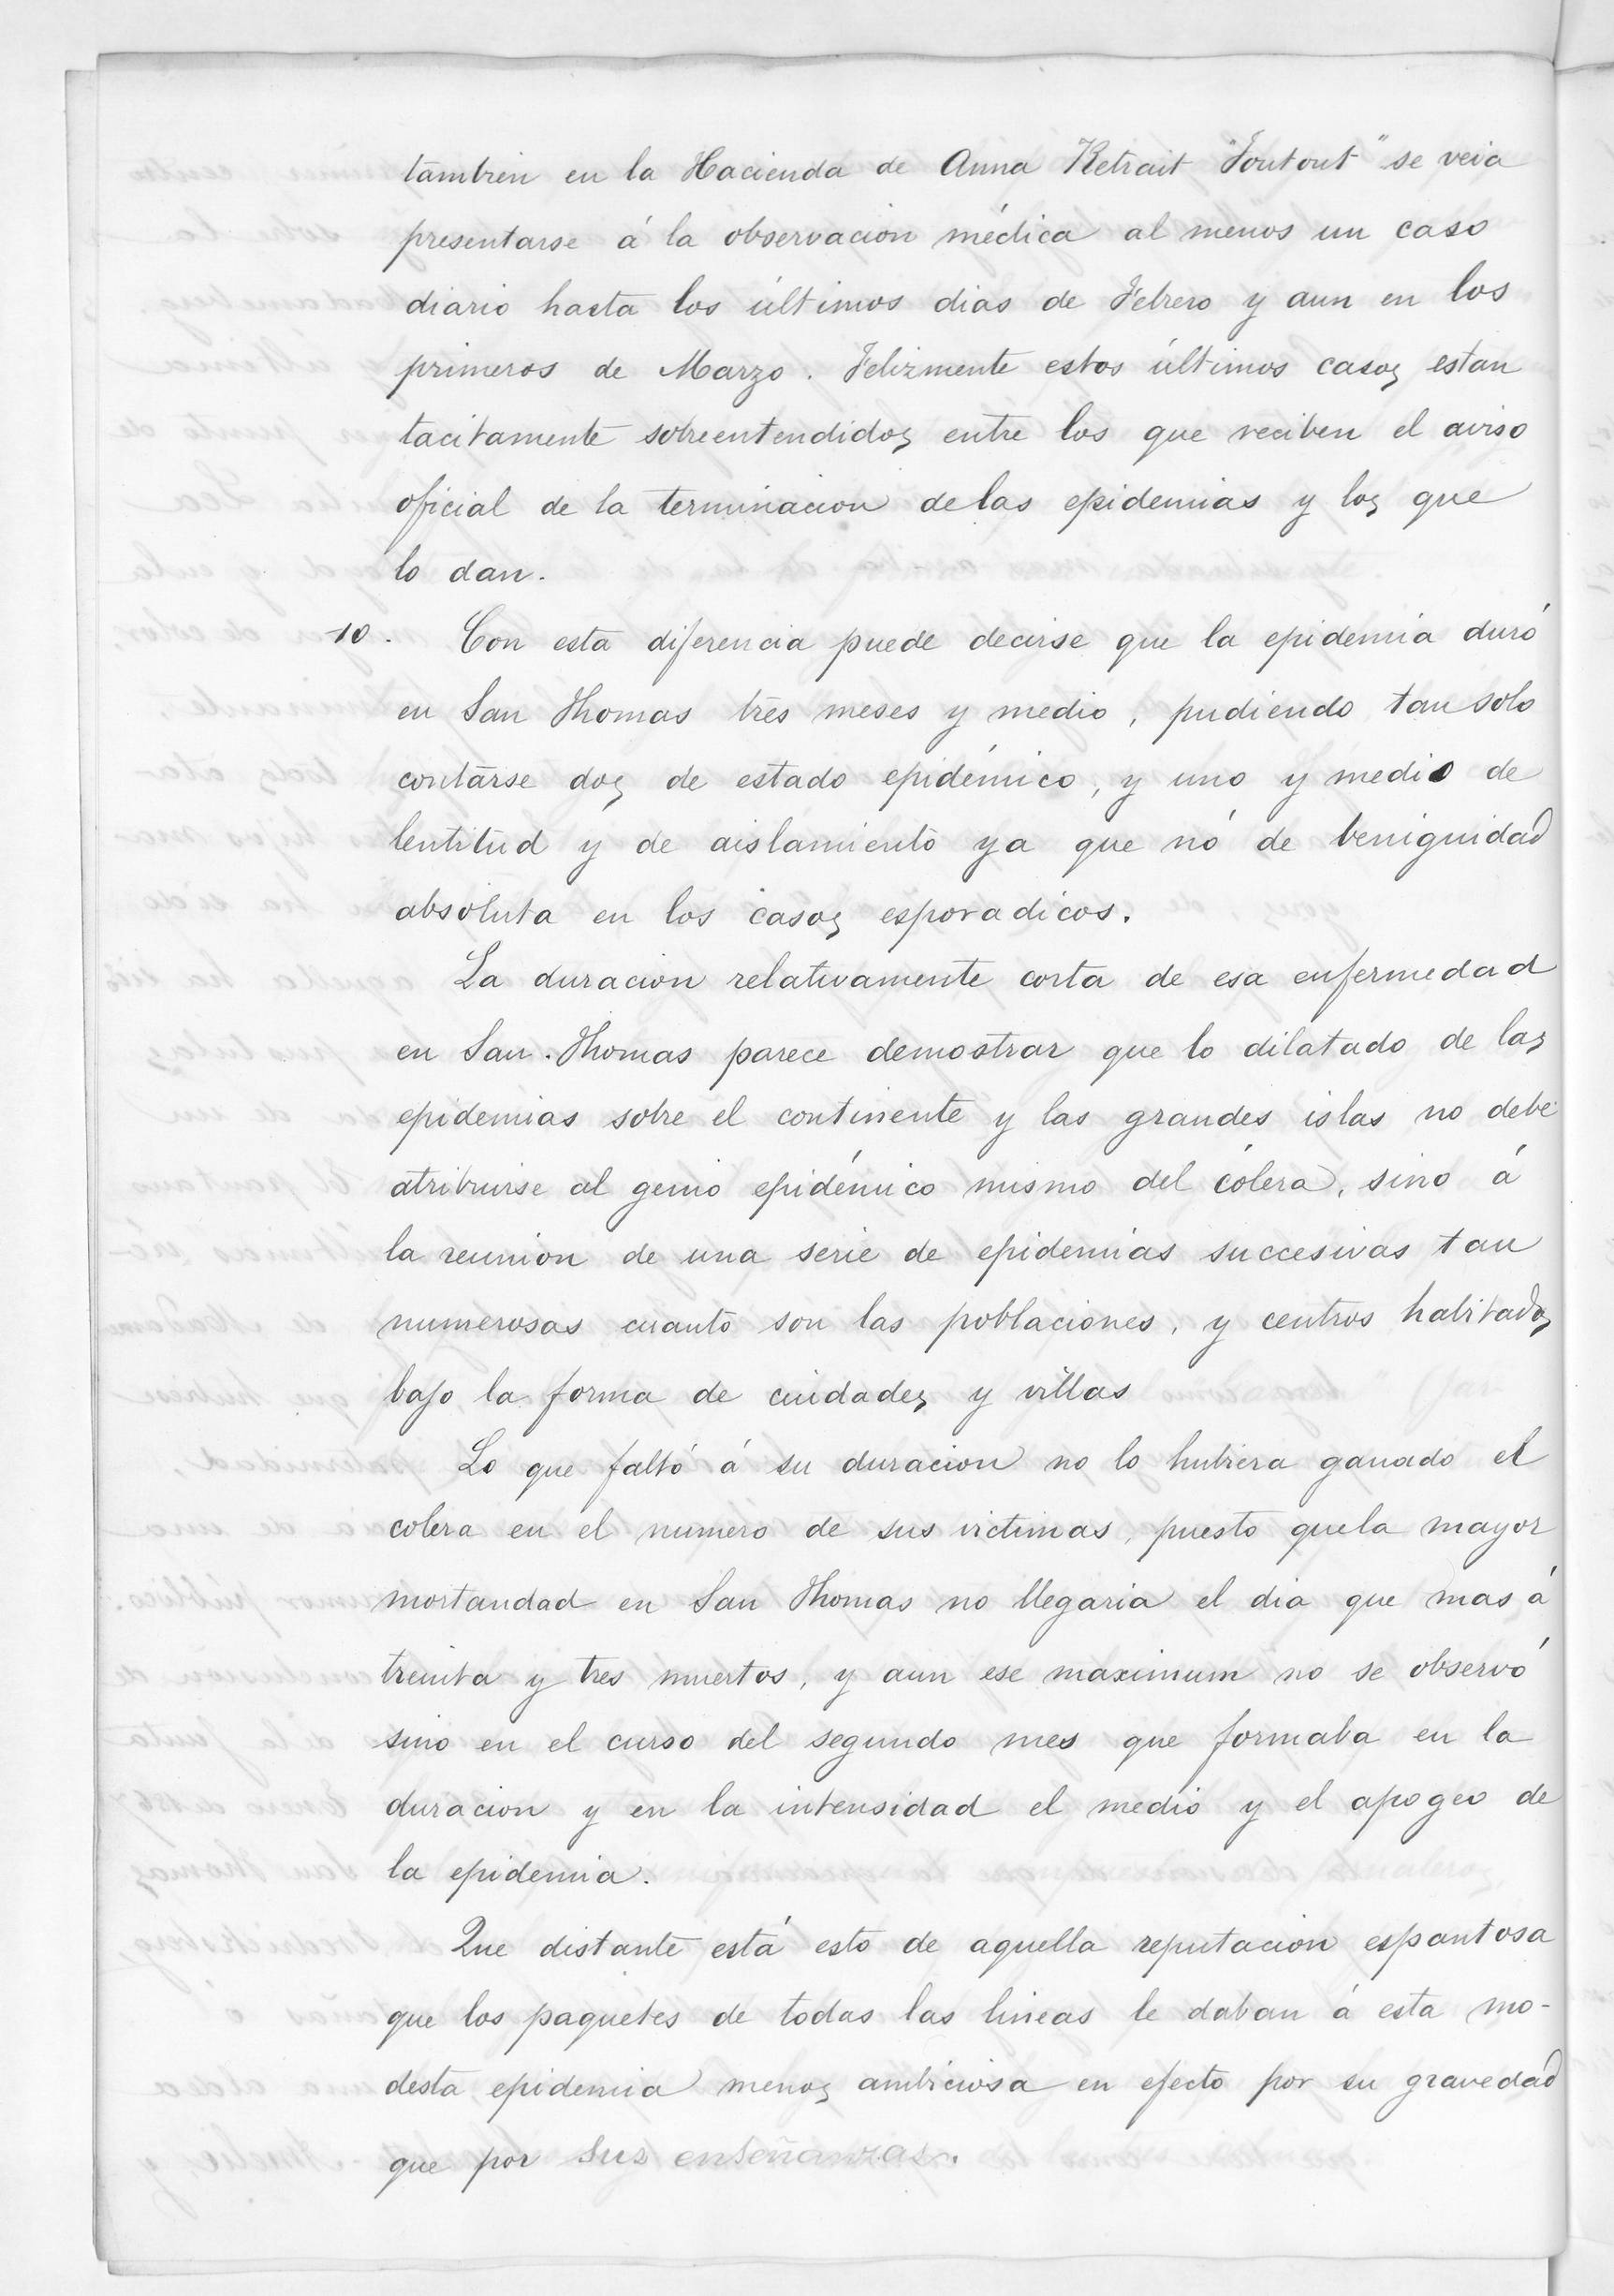 tambien en la Hacienda de Anna Retrait "Toutout" se veia
presentarse á la observacion médica al menos un caso
diario hasta los últimos dias de Febrero y aun en los
primeros de Marzo. Felizmente estos últimos casos estan
tacitamente sobreentendidos entre los que reciben el aviso
oficial de la terminacion de las epidemias y los que
lo dan.
10. Con esta diferencia puede decirse que la epidemia duró
en San Thomas tres meses y medio, pudiendo tan solo
contarse dos de estado epidémico, y uno y medio de
lentitud y de aislamiento ya que nó de benignidad
absoluta en los casos esporadicos.
La duracion relativamente corta de esa enfermedad
en San. Thomas parece demostrar que lo dilatado de las
epidemias sobre el continente y las grandes islas no debe
atribuirse al genio epidémico mismo del cólera, sino á
la reunion de una serie de epidemias succesivas tan
numerosas cuanto son las poblaciones, y centros habitados
bajo la forma de ciudades y villas
Lo que faltó á su duracion no lo hubiera ganado el
colera en el numero de sus victimas, puesto que la mayor
mortandad en San Thomas no llegaria el dia que mas á
treinta y tres muertos, y aun ese maximum no se observó
sino en el curso del segundo mes que formaba en la
duracion y en la intensidad el medio y el apogeo de
la epidemia.
Que distante está esto de aquella reputacion espantosa
que los paquetes de todas las lineas le daban á esta mo-
desta epidemia menos ambiciosa en efecto por su gravedad
que por sus enseñanzas.